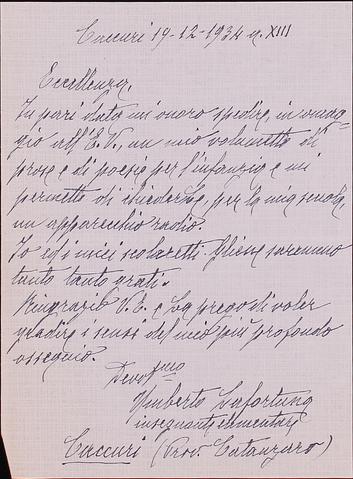 Caccuri 19-12-1934 a. XIII
Eccellenza,
In pari data mi onoro spedire, in omag-
gio all'E. V., un mio volumetto di
prose e di poesie per l'infanzia e mi
permetto di chiederLe, per la mia scuola,
un apparecchio radio.
Io ed i miei scolaretti gliene saremmo
tanto tanto grati.
Ringrazio V. E. e La prego di voler
gradire i sensi del mio più profondo
ossequio.
Devot.mo
Umberto Lafortuna
insegnante elementare
Caccuri (Prov. Catanzaro)